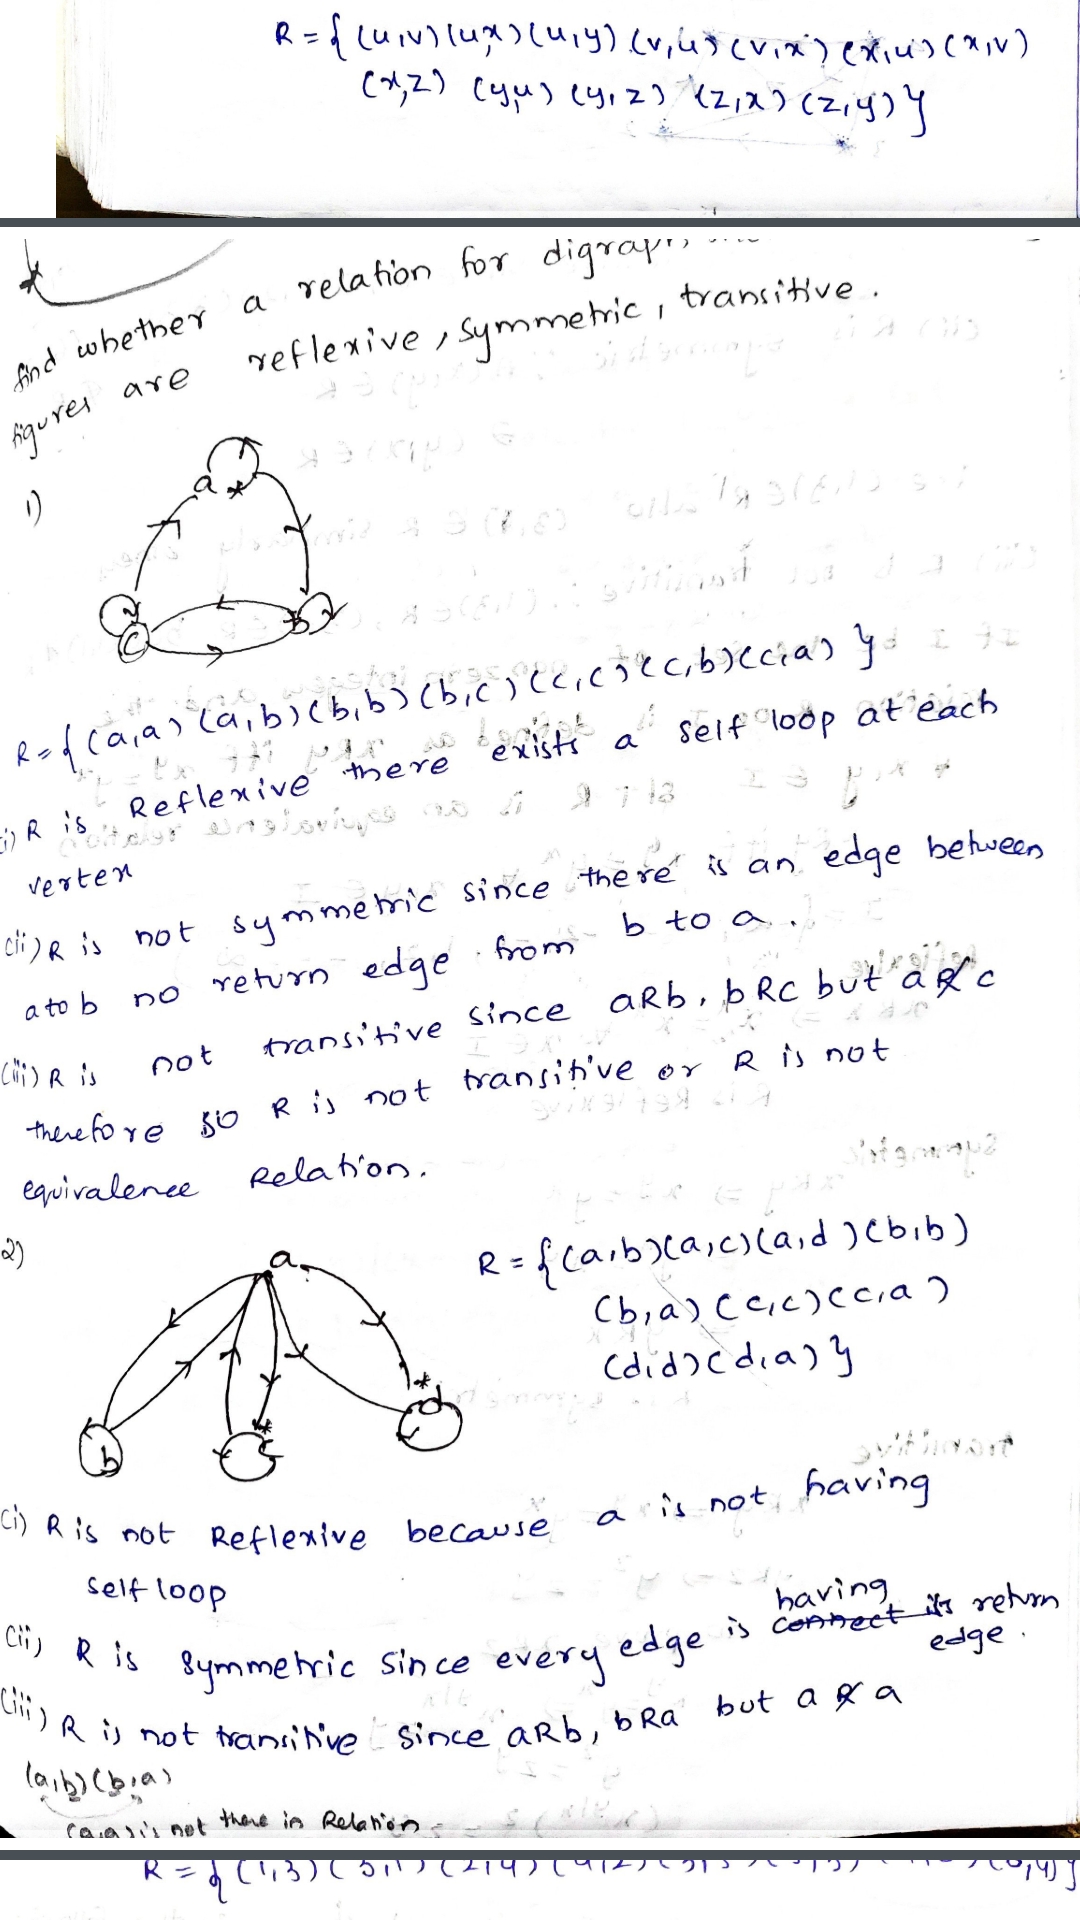 R = { (u,v) (u,x) (u,y) (v,u) (v,x) (x,u) (x,v)
(x,z) (y,u) (y,z) (z,x) (z,y) }
find whether a relation for digraph
figures are reflexive, symmetric, transitive.
1)
a
c b
R = { (a,a) (a,b) (b,b) (b,c) (c,c) (c,b) (c,a) }
i) R is Reflexive there exists a self loop at each
vertex
(ii) R is not symmetric since there is an edge between
a to b no return edge from b to a.
(iii) R is not transitive since aRb, bRc but a R̸ c
therefore so R is not transitive or R is not
equivalence Relation.
2)
a
b c d
R = { (a,b) (a,c) (a,d) (b,b)
(b,a) (c,c) (c,a)
(d,d) (d,a) }
(i) R is not Reflexive because a is not having
self loop
(ii) R is symmetric since every edge is having its return
edge.
(iii) R is not transitive since aRb, bRa but a R̸ a
(a,b) (b,a)
(a,a) is not there in Relation
R = { (1,3) (3,1) (2,4) (4,2)